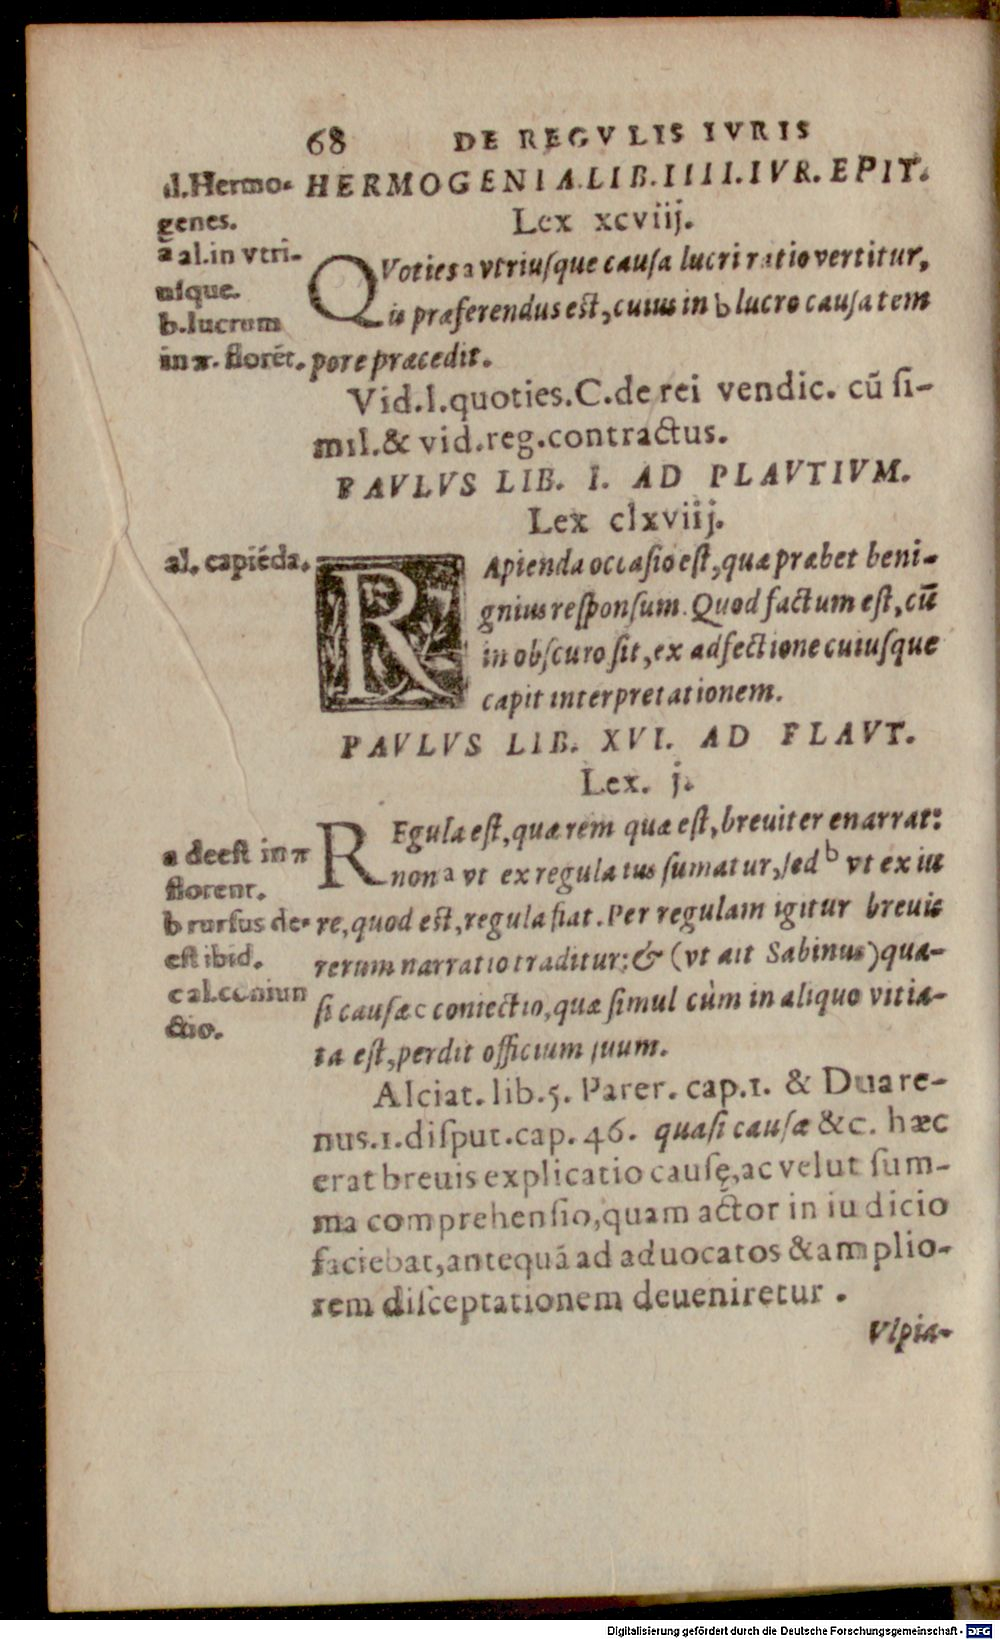 68 DE REGVLIS IVRIS
d.Hermo-
genes.
HERMOGENIA.LIB.IIII.IVR.EPIT.
Lex xcviij.
a al.in vtri-
uſque.
b.lucrum
in π. florēt.
QVoties a vtriuſque cauſa lucri ratio vertitur,
is præferendus eſt, cuius in b lucro cauſa tem
pore præcedit.
Vid.l.quoties.C.de rei vendic. cū ſi-
mil.& vid.reg.contractus.
PAVLVS LIB. I. AD PLAVTIVM.
Lex clxviij.
al. capiēda.
RApienda occaſio eſt, quæ præbet beni-
gnius reſponſum. Quod factum eſt, cū
in obſcuro ſit, ex adfectione cuiuſque
capit interpretationem.
PAVLVS LIB. XVI. AD PLAVT.
Lex. j.
a deeſt in π
florent.
b rurſus de-
eſt ibid.
c al.coniun
ctio.
REgula eſt, quæ rem quæ eſt, breuiter enarrat:
non a vt ex regula ius ſumatur, ſed b vt ex iu
re, quod eſt, regula fiat. Per regulam igitur breuis
rerum narratio traditur: & (vt ait Sabinus) qua-
ſi cauſæ c coniectio, quæ ſimul cùm in aliquo vitia-
ta eſt, perdit officium ſuum.
Alciat. lib.5. Parer. cap.1. & Duare-
nus.1.diſput.cap. 46. quaſi cauſæ &c. hæc
erat breuis explicatio cauſę, ac velut ſum-
ma comprehenſio, quam actor in iudicio
faciebat, antequā ad aduocatos & amplio-
rem diſceptationem deueniretur.
Vlpia-
Digitalisierung gefördert durch die Deutsche Forschungsgemeinschaft - DFG